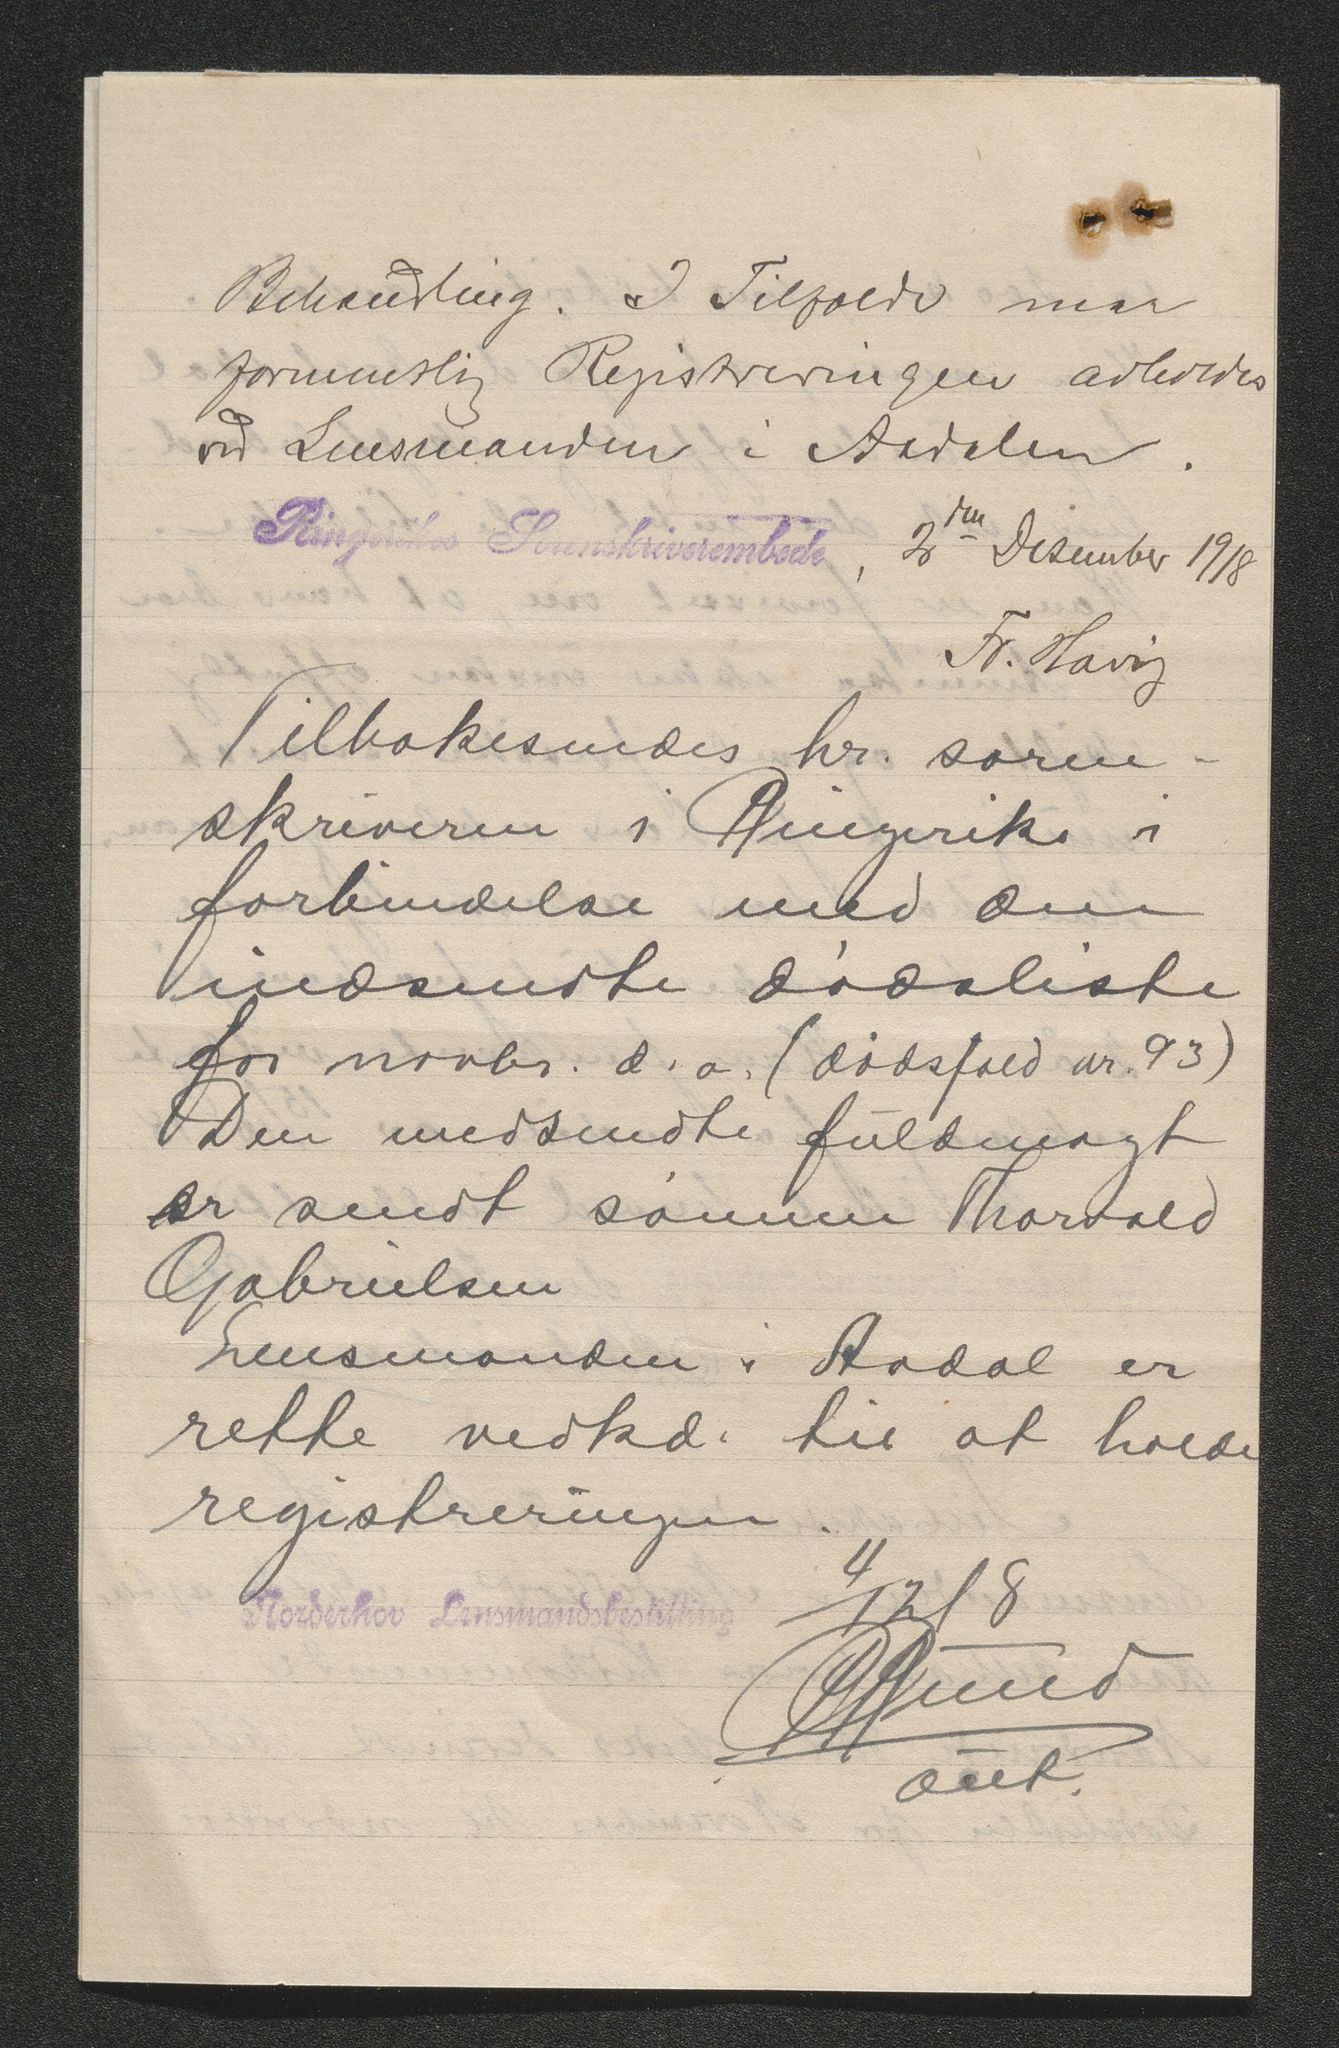 Behandling. I Tilfælde maa
formentlig Registreringen avholdes
ved Lensmanden i Aadalen.
Ringerikes Sorenskriverembede, 2den Desember 1918
Fr. Harig
Tilbakesendes hr. soren-
skriveren i Ringerike i
forbindelse med den
indsendte dødsliste
for novbr. d. a. (dødsfald nr. 93)
Den medsendte fuldmagt
er sendt sønnen Thorvald
Gabrielsen
Lensmanden i Aadal er
rette vedkd. til at holde
registreringen.
Norderhov Lensmandsbestilling 4/12 18
Lund
aut.